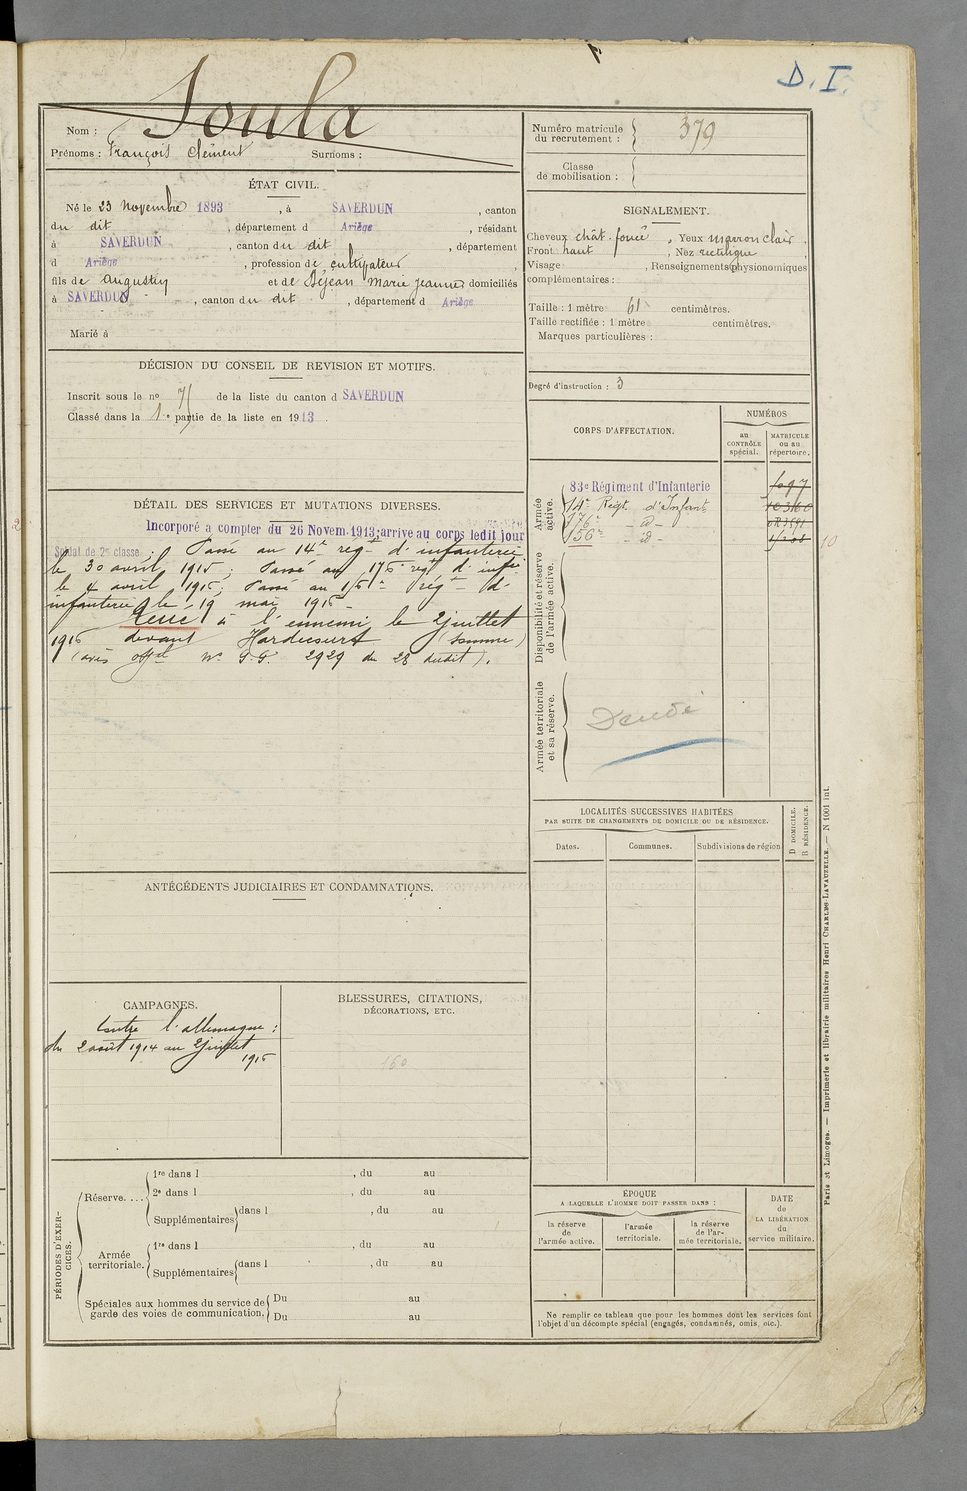 D. I.
Nom : Soula
Prénoms : François Clément Surnoms :
ÉTAT CIVIL.
Né le 23 Novembre 1893, à SAVERDUN, canton
du dit, département d Ariège, résidant
à SAVERDUN, canton du dit, département
d Ariège, profession de cultivateur,
fils de Augustin et de Déjean Marie Jeanne domiciliés
à SAVERDUN, canton du dit, département d Ariège
Marié à
DÉCISION DU CONSEIL DE REVISION ET MOTIFS.
Inscrit sous le nº de la liste du canton d SAVERDUN
Classé dans la 1re partie de la liste en 1913.
DÉTAIL DES SERVICES ET MUTATIONS DIVERSES.
Incorporé à compter du 26 Novem. 1913; arrivé au corps ledit jour
Soldat de 2e classe. Passé au 14e rég- d'infanterie
le 30 avril 1915; Passé au 176e rég- d'infie
le 4 avril 1915; Passé au 156e rég- d'
infanterie le 19 mai 1915-
Tué à l'ennemi le 2 juillet
1916 devant Hardecourt (Somme)
(avis offel Nº G.G. 2929 du 28 dudit).
ANTÉCÉDENTS JUDICIAIRES ET CONDAMNATIONS.
CAMPAGNES.
Contre l'allemagne :
du 2 août 1914 au 2 juillet
1916
BLESSURES, CITATIONS,
DÉCORATIONS, ETC.
160
PÉRIODES D'EXERCICES.
Réserve....
1re dans l , du au
2e dans l , du au
Supplémentaires dans l , du au
Armée territoriale.
1re dans l , du au
Supplémentaires dans l , du au
Spéciales aux hommes du service de garde des voies de communication.
Du au
Du au
Numéro matricule du recrutement : 379
Classe de mobilisation :
SIGNALEMENT.
Cheveux chât. foncé, Yeux marron clair,
Front haut, Nez rectiligne,
Visage , Renseignements physionomiques
complémentaires :
Taille : 1 mètre 61 centimètres.
Taille rectifiée : 1 mètre centimètres.
Marques particulières :
Degré d'instruction : 3
CORPS D'AFFECTATION.
NUMÉROS
au CONTRÔLE spécial.
MATRICULE ou au répertoire.
Armée active.
83e Régiment d'Infanterie
14e Régt. d'Infant
176e - d° -
156e - d° -
Disponibilité et réserve de l'armée active.
Armée territoriale et sa réserve.
LOCALITÉS SUCCESSIVES HABITÉES
PAR SUITE DE CHANGEMENTS DE DOMICILE OU DE RÉSIDENCE.
Dates.
Communes.
Subdivisions de région
D DOMICILE.
R RÉSIDENCE.
ÉPOQUE
A LAQUELLE L'HOMME DOIT PASSER DANS :
la réserve de l'armée active.
l'armée territoriale.
la réserve de l'armée territoriale.
DATE de LA LIBÉRATION du service militaire.
Ne remplir ce tableau que pour les hommes dont les services font
l'objet d'un décompte spécial (engagés, condamnés, omis, etc.).
Paris et Limoges. — Imprimerie et librairie militaires Henri CHARLES-LAVAUZELLE. — N 1001 int.